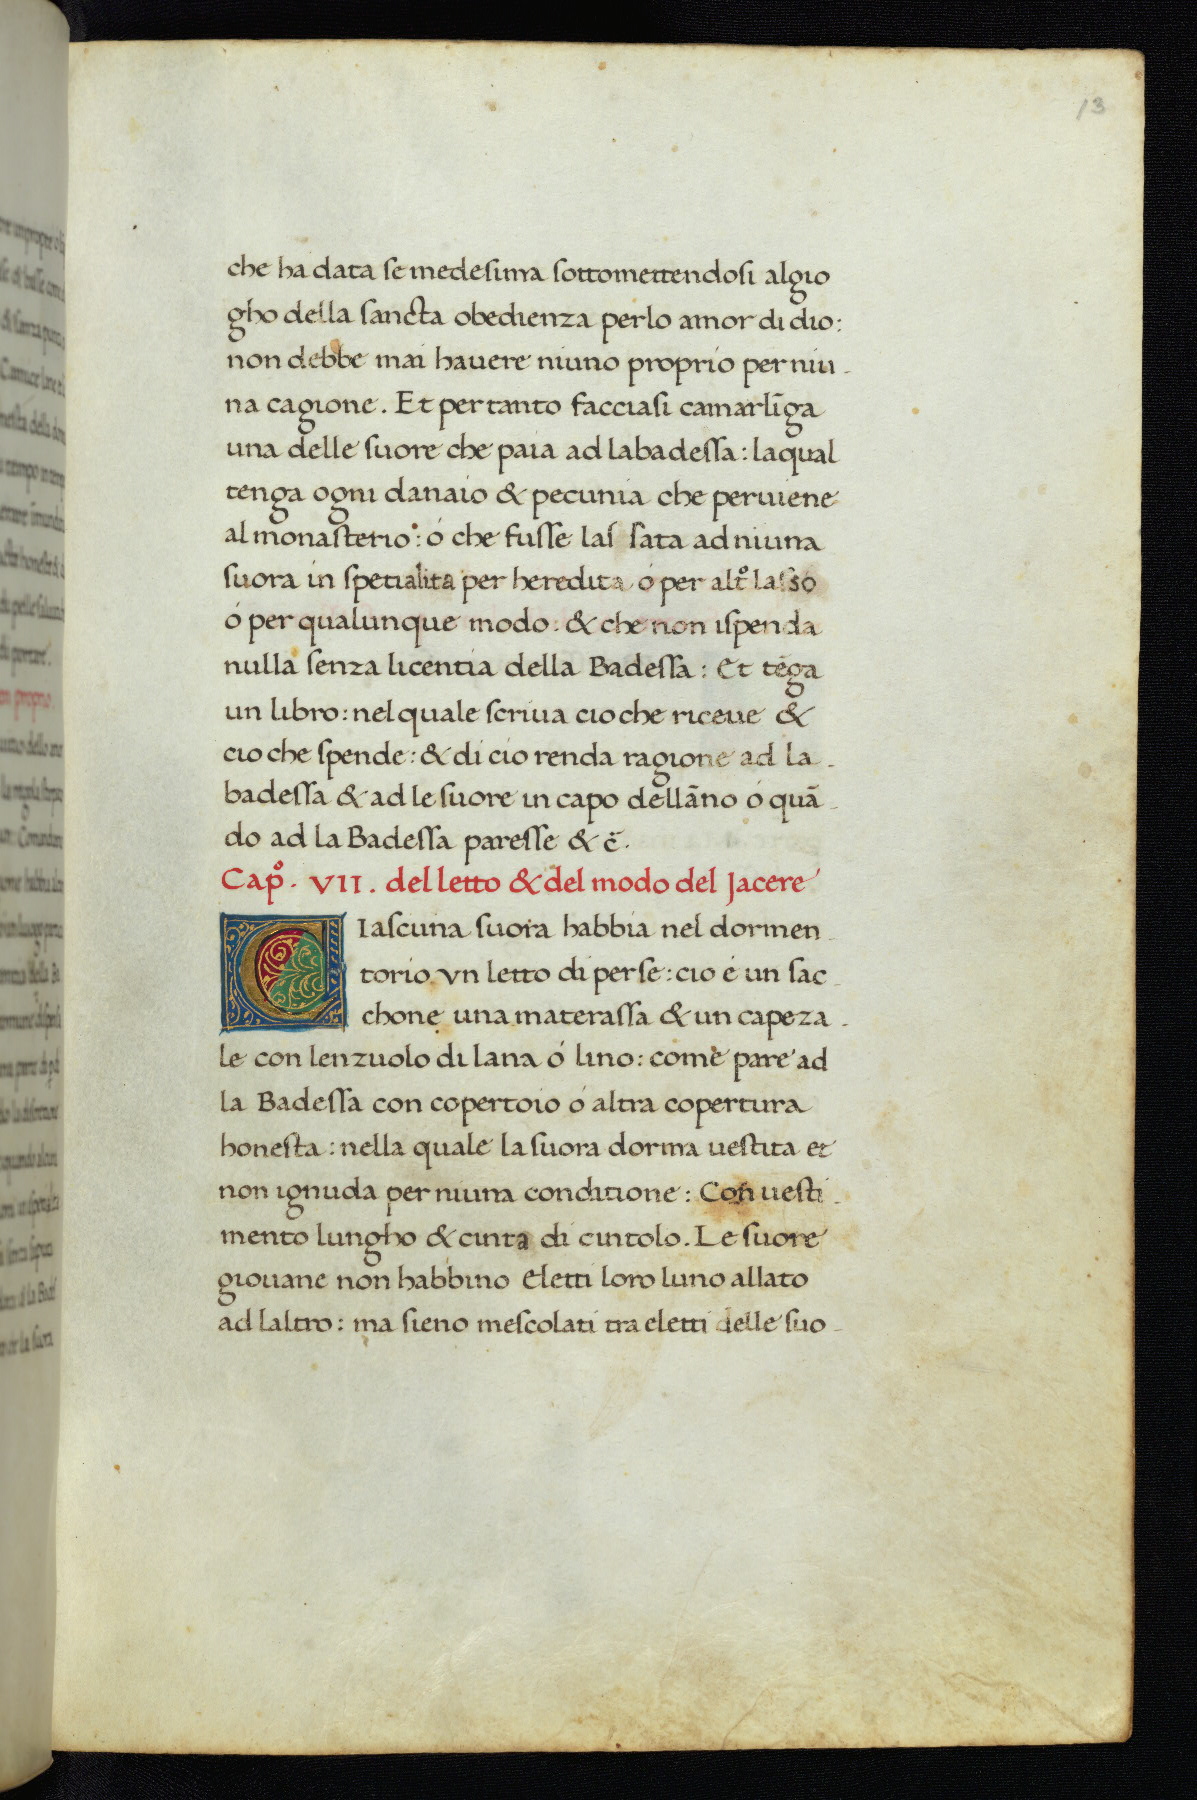 13
che ha data se medesima sottomettendosi algio
gho della sancta obedienza perlo amor di dio:
non debbe mai hauere niuno proprio per niu-
na cagione. Et per tanto facciasi camarlīga
una delle suore che paia ad labadessa: laqual
tenga ogni danaio & pecunia che peruiene
al monasterio: ó che fusse las sata ad niuna
suora in spetialita per heredita ó per altº lasso
ó per qualunque modo: & che non ispenda
nulla senza licentia della Badessa: Et tēga
un libro: nel quale scriua cio che riceue &
cio che spende: & di cio renda ragione ad la-
badessa & ad le suore in capo dellāno ó quā-
do ad la Badessa paresse & c̄.
Capº. VII. del letto & del modo del Jacere
CIascuna suora habbia nel dormen-
torio vn letto di perse: cio é un sac-
chone una materassa & un capeza-
le con lenzuolo di lana ó lino: come pare ad
la Badessa con copertoio ó altra copertura
honesta: nella quale la suora dorma uestita et
non ignuda per niuna conditione: Con uesti-
mento lungho & cinta di cintolo. Le suore
giouane non habbino eletti loro luno allato
ad laltro: ma sieno mescolati tra eletti delle suo-